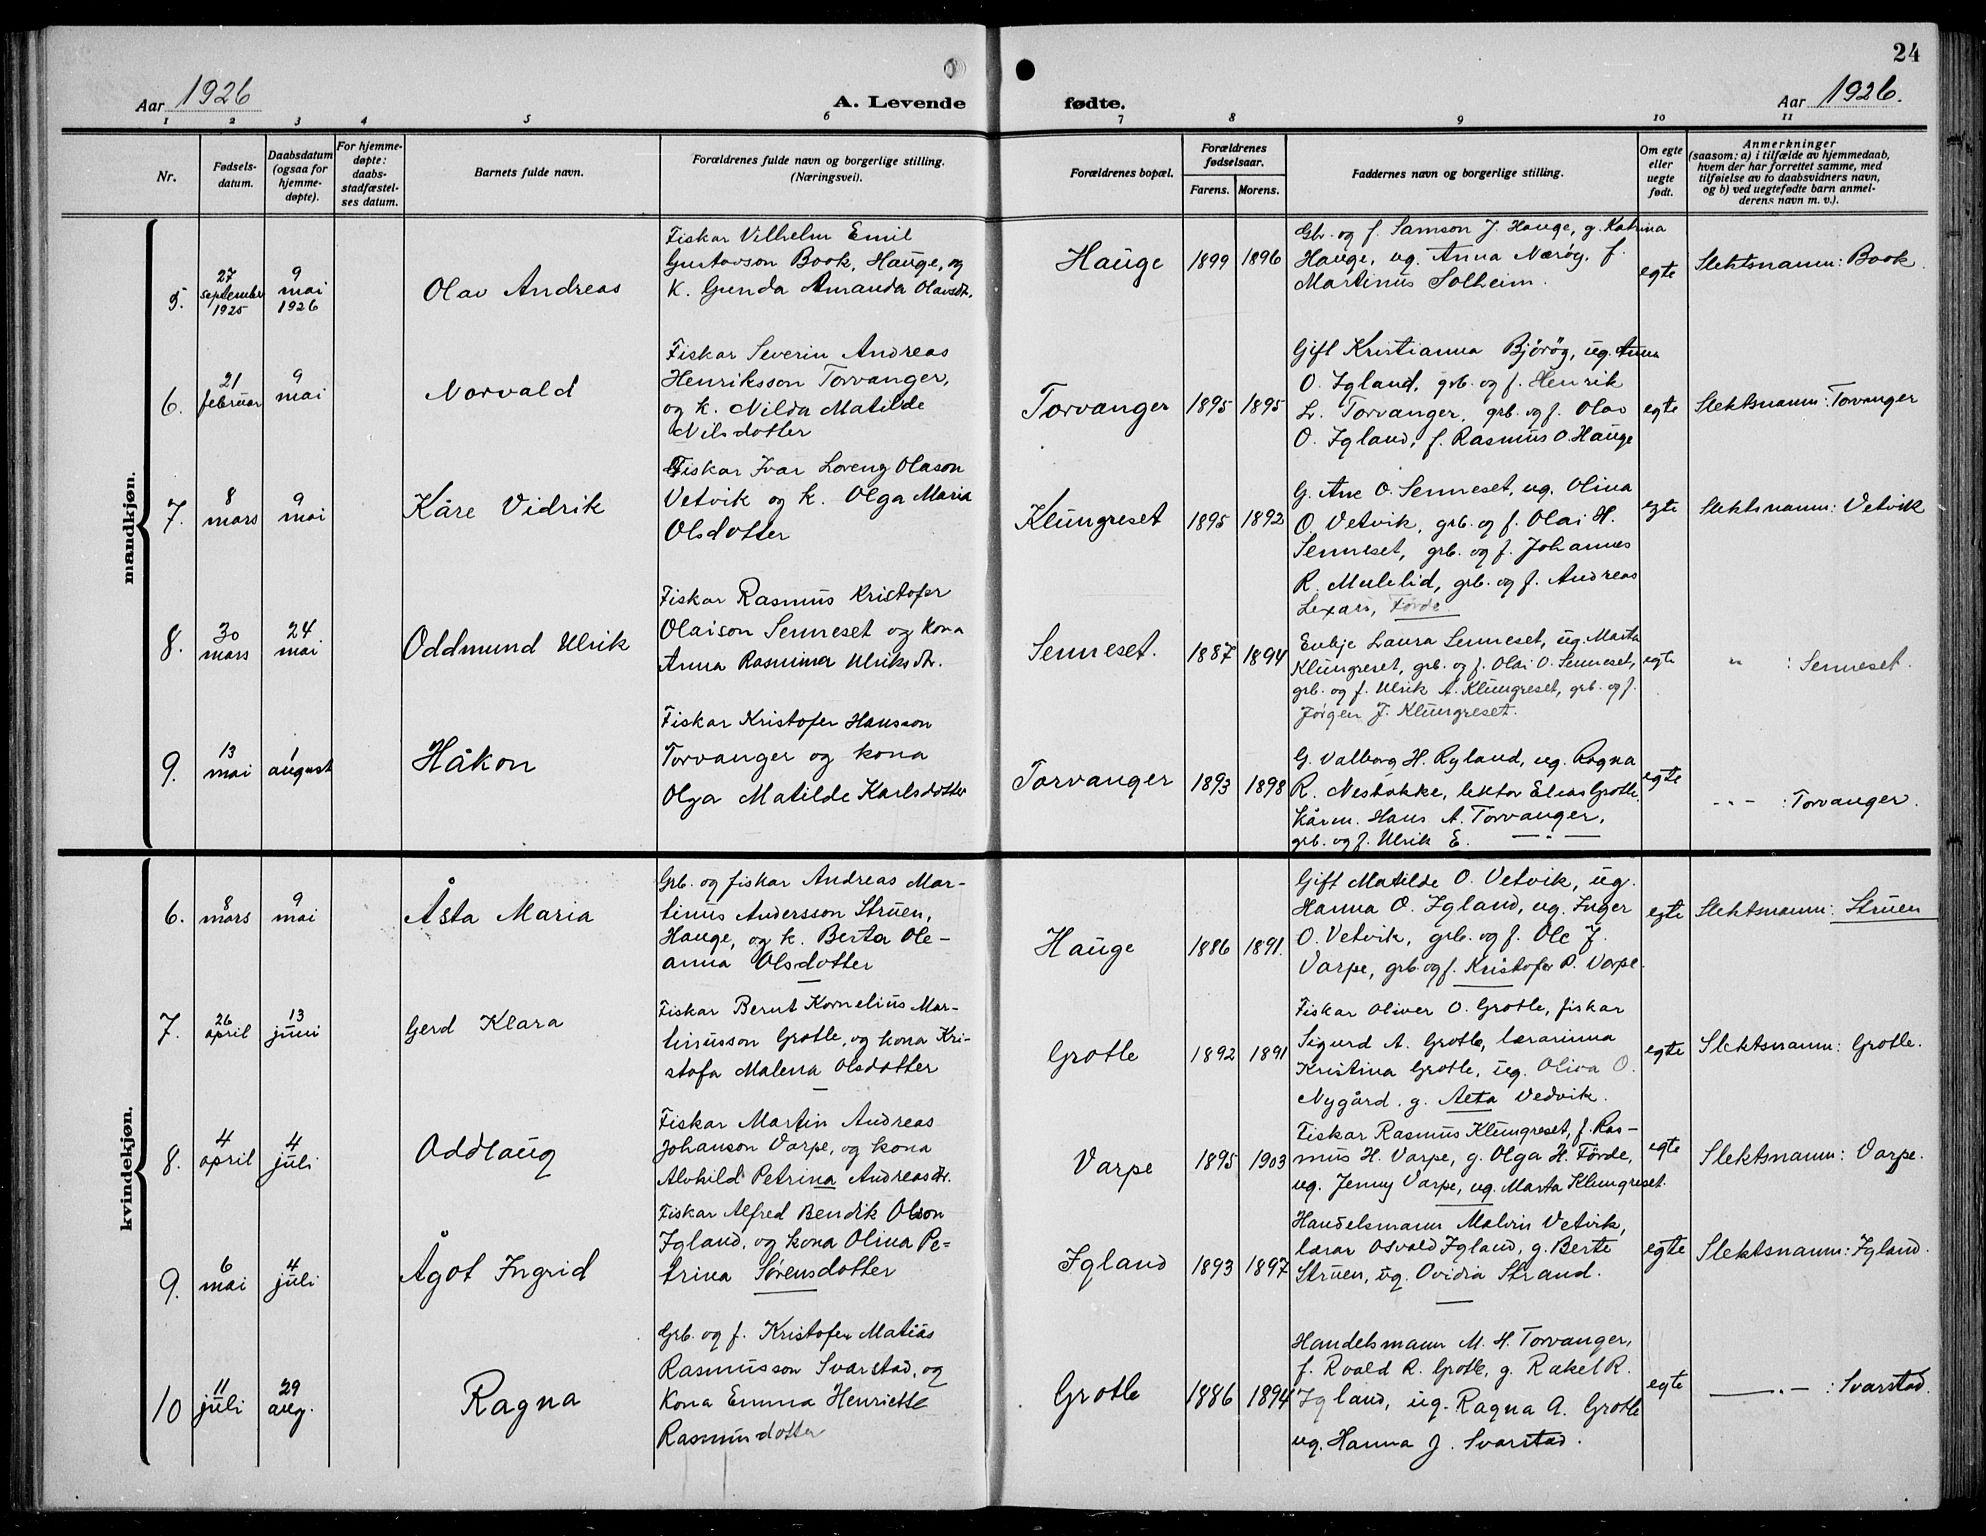 24
Aar 1926
A. Levende
fødte.
Aar 1926.
1 2 3 4 5 6 7 8 9 10 11
Nr.
Fødsels-
datum.
Daabsdatum
(ogsaa for
hjemme-
døpte).
For hjemme-
døpte:
daabs-
stadfæstel-
ses datum.
Barnets fulde navn.
Forældrenes fulde navn og borgerlige stilling.
(Næringsvei).
Forældrenes bopæl.
Forældrenes
fødselsaar.
Farens. Morens.
Faddernes navn og borgerlige stilling.
Om egte
eller
uegte
født.
Anmerkninger
(saasom: a) i tilfælde av hjemmedaab,
hvem der har forrettet samme, med
tilføielse av to daabsvidners navn,
og b) ved uegtefødte barn anmel-
derens navn m. v.).
mandkjøn.
5.
27
september
1925
9
mai
1926
Olav Andreas
Fiskar Vilhelm Emil
Gustavson Book, Hauge, og
k. Gunda Amanda Olavsdtr.
Hauge
1899 1896
Gbr. og f. Samson J. Hauge, g. Katrina
Hauge, ug. Anna Nærøy, f.
Martinus Solheim.
egte
Slektsnamn: Book.
6.
21
februar
9
mai
Norvald
Fiskar Severin Andreas
Henriksson Torvanger,
og k. Nilda Matilde
Nilsdotter
Torvanger
1895 1895
Gift Kristianna Bjørøy, ug. Anna
O. Igland, grb. og f. Henrik
L. Torvanger, grb. og f. Olav
O. Igland, f. Rasmus O. Hauge
egte
Slektsnamn: Torvanger
7.
8
mars
9
mai
Kåre Vidrik
Fiskar Ivar Loreng Olason
Vetvik og k. Olga Maria
Olsdotter
Klungreset
1895 1892
G. Ane O. Senneset, ug. Olina
O. Vetvik, grb. og f. Olai H.
Senneset, grb. og f. Johannes
R. Mulelid, grb. og f. Andreas
Førde.
egte
Slektsnamn: Vetvik
8.
30
mars
24
mai
Oddmund Ulrik
Fiskar Rasmus Kristofer
Olaison Senneset og kona
Anna Rasmina Ulriksdtr.
Senneset.
1887 1894
Enkje Laura Senneset, ug. Marta
Klungreset, grb. og f. Olai O. Senneset,
grb. og f. Ulrik A. Klungreset, grb. og f.
Jørgen J. Klungreset.
egte
" : Senneset.
9.
13
mai
1
august
Håkon
Fiskar Kristofer Hansson
Torvanger og kona
Olga Matilde Karlsdotter
Torvanger
1893 1898
G. Valborg H. Ryland, ug. Ragna
R. Nestakke, lektor Elias Grotle
kårm. Hans A. Torvanger,
grb. og f. Ulrik E. — " —
egte
- " - : Torvanger.
kvindekjøn.
6.
8
mars
9
mai
Åsta Maria
Grb. og fiskar Andreas Mar-
tinus Andersson Struen,
Hauge, og k. Berta Ole-
anna Olsdotter
Hauge
1886 1891.
Gift Matilde O. Vetvik, ug.
Hanna O. Igland, ug. Inger
O. Vetvik, grb. og f. Ole J.
Varpe, grb. og f. Kristofer P. Varpe.
egte
Slektsnamn: Struen
7.
26
april
13
juni
Gerd Klara
Fiskar Bernt Kornelius Mar-
tinusson Grotle, og kona Kri-
stofa Malena Olsdotter
Grotle
1892 1891
Fiskar Oliver O. Grotle, fiskar
Sigurd A. Grotle, lærarinna
Kristina Grotle, ug. Oliva O.
Nygård. g. Alta Vedvik.
egte
Slektsnamn: Grotle.
8.
4
april
4
juli
Oddlaug
Fiskar Martin Andreas
Johanson Varpe, og kona
Alvhild Petrina Andreasdtr.
Varpe
1895 1903
Fiskar Rasmus Klungreset, f. Ras-
mus H. Varpe, g. Olga H. Førde,
ug. Jenny Varpe, ug. Marta Klungreset.
egte
Slektsnamn: Varpe.
9.
6
mai
4
juli
Ågot Ingrid
Fiskar Alfred Bendik Olson
Igland, og kona Olina Pe-
trina Sørensdotter
Igland
1893 1897
Handelsmann Malvin Vetvik,
lærar Osvald Igland, g. Berte
Struen, ug. Ovidia Strand.
egte
Slektsnamn: Igland.
10
11
juli
29
aug.
Ragna
Grb. og f. Kristofer Matias
Rasmusson Svarstad, og
Kona Emma Henriette
Rasmusdotter
Grotle
1886 1894
Handelsmann M. H. Torvanger,
f. Roald R. Grotle, g. Rakel R.
Igland, ug. Ragna A. Grotle
ug. Hanna J. Svarstad.
egte
— " — : Svarstad.